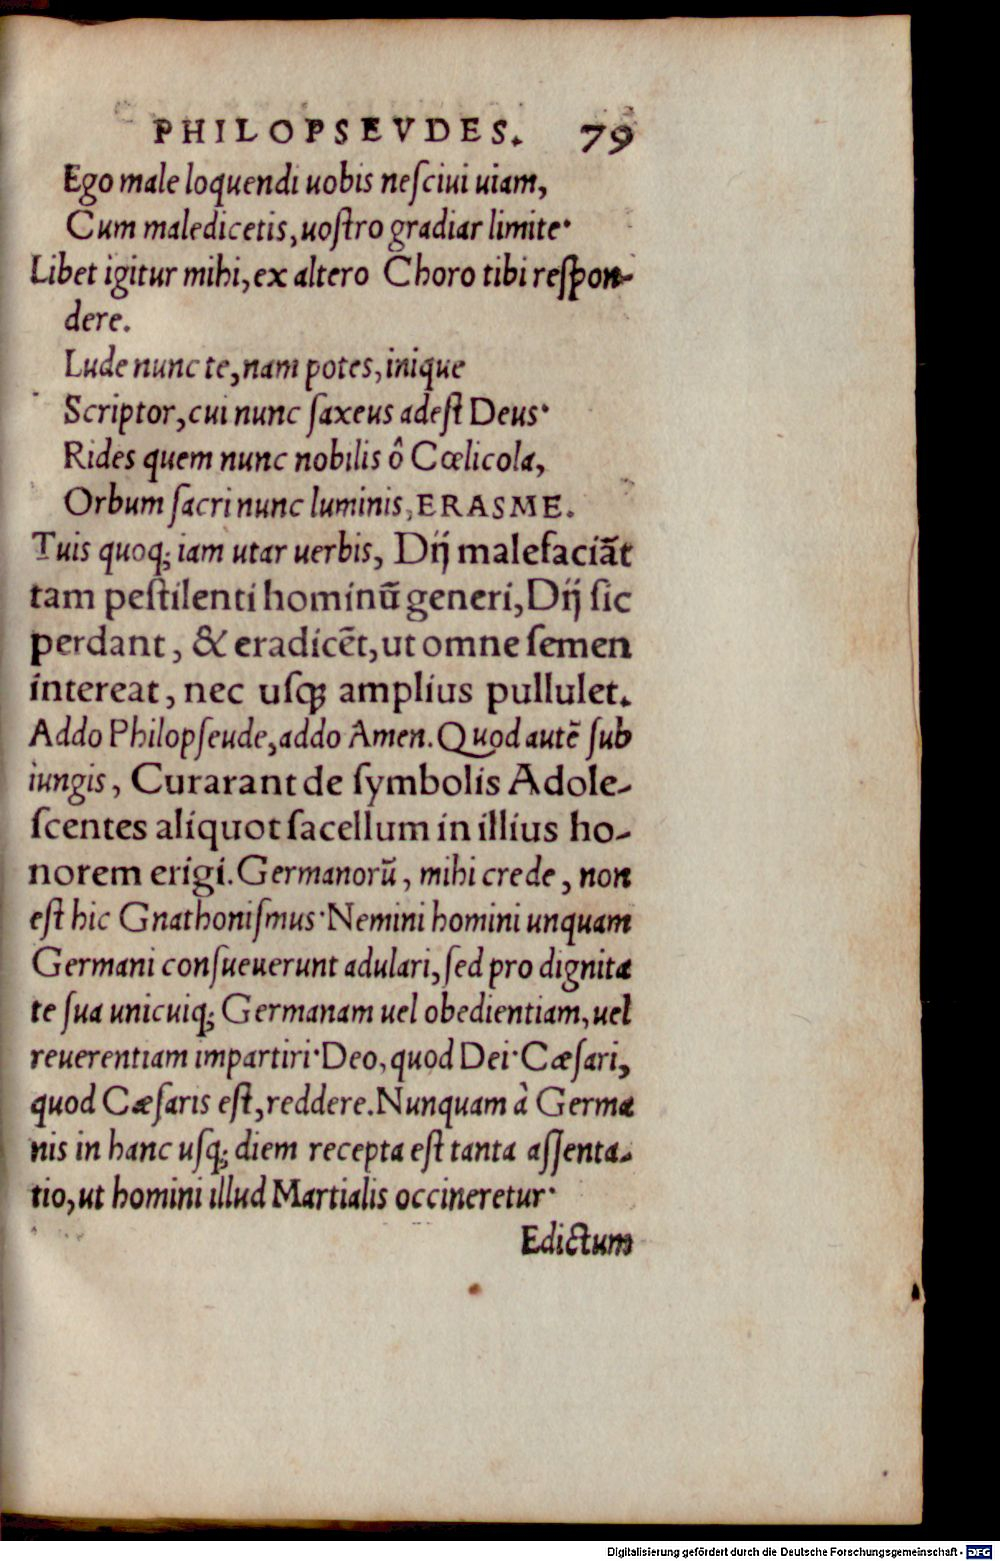 PHILOPSEVDES. 79
Ego male loquendi uobis nesciui uiam,
Cum maledicetis, uostro gradiar limite·
Libet igitur mihi, ex altero Choro tibi respon-
dere.
Lude nunc te, nam potes, inique
Scriptor, cui nunc saxeus adest Deus·
Rides quem nunc nobilis ô Cœlicola,
Orbum sacri nunc luminis, ERASME.
Tuis quoq; iam utar uerbis, Dij malefaciãt
tam pestilenti hominũ generi, Dij sic
perdant, & eradicẽt, ut omne semen
intereat, nec usq; amplius pullulet.
Addo Philopseude, addo Amen. Quod autẽ sub
iungis, Curarant de symbolis Adole-
scentes aliquot sacellum in illius ho-
norem erigi. Germanorũ, mihi crede, non
est hic Gnathonismus· Nemini homini unquam
Germani consueuerunt adulari, sed pro dignita
te sua unicuiq; Germanam uel obedientiam, uel
reuerentiam impartiri· Deo, quod Dei· Cæsari,
quod Cæsaris est, reddere. Nunquam à Germa
nis in hanc usq; diem recepta est tanta assenta-
tio, ut homini illud Martialis occineretur·
Edictum
Digitalisierung gefördert durch die Deutsche Forschungsgemeinschaft - DFG